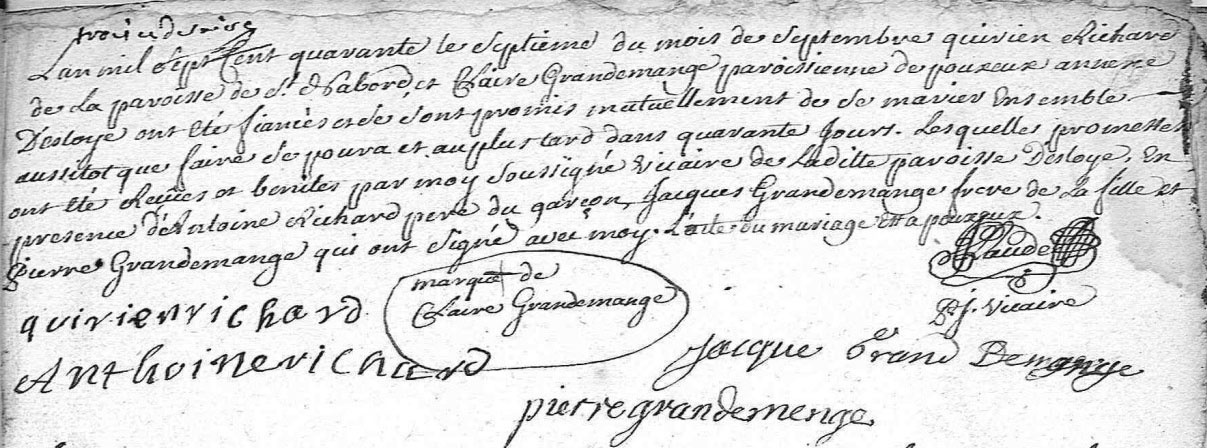 L'an mil Sept Cent quarante le Septieme du mois de Septembre quirien Richard
de La paroisse de St Nabord, et Claire Grandemange paroissienne de pouxeux annexe
Desloye ont Eté fiancés et se sont promis mutuellement de se marier Ensemble
aussitot que faire se poura et au plus tard dans quarante Jours. Lesquelles promesses
ont Eté Reçües et benites par moy Soussigné Vicaire de Laditte paroisse Desloye. En
presence d'Antoine Richard pere du garçon, Jacques Grandemange frere de La fille et
pierre Grandemange qui ont Signé avec moy. L'acte du mariage est a pouxeux.
quirien richard
marque de
Claire Grandemange
Claude
Vicaire
Anthoine richard
Jacque Grand Demange
pierre grandemenge